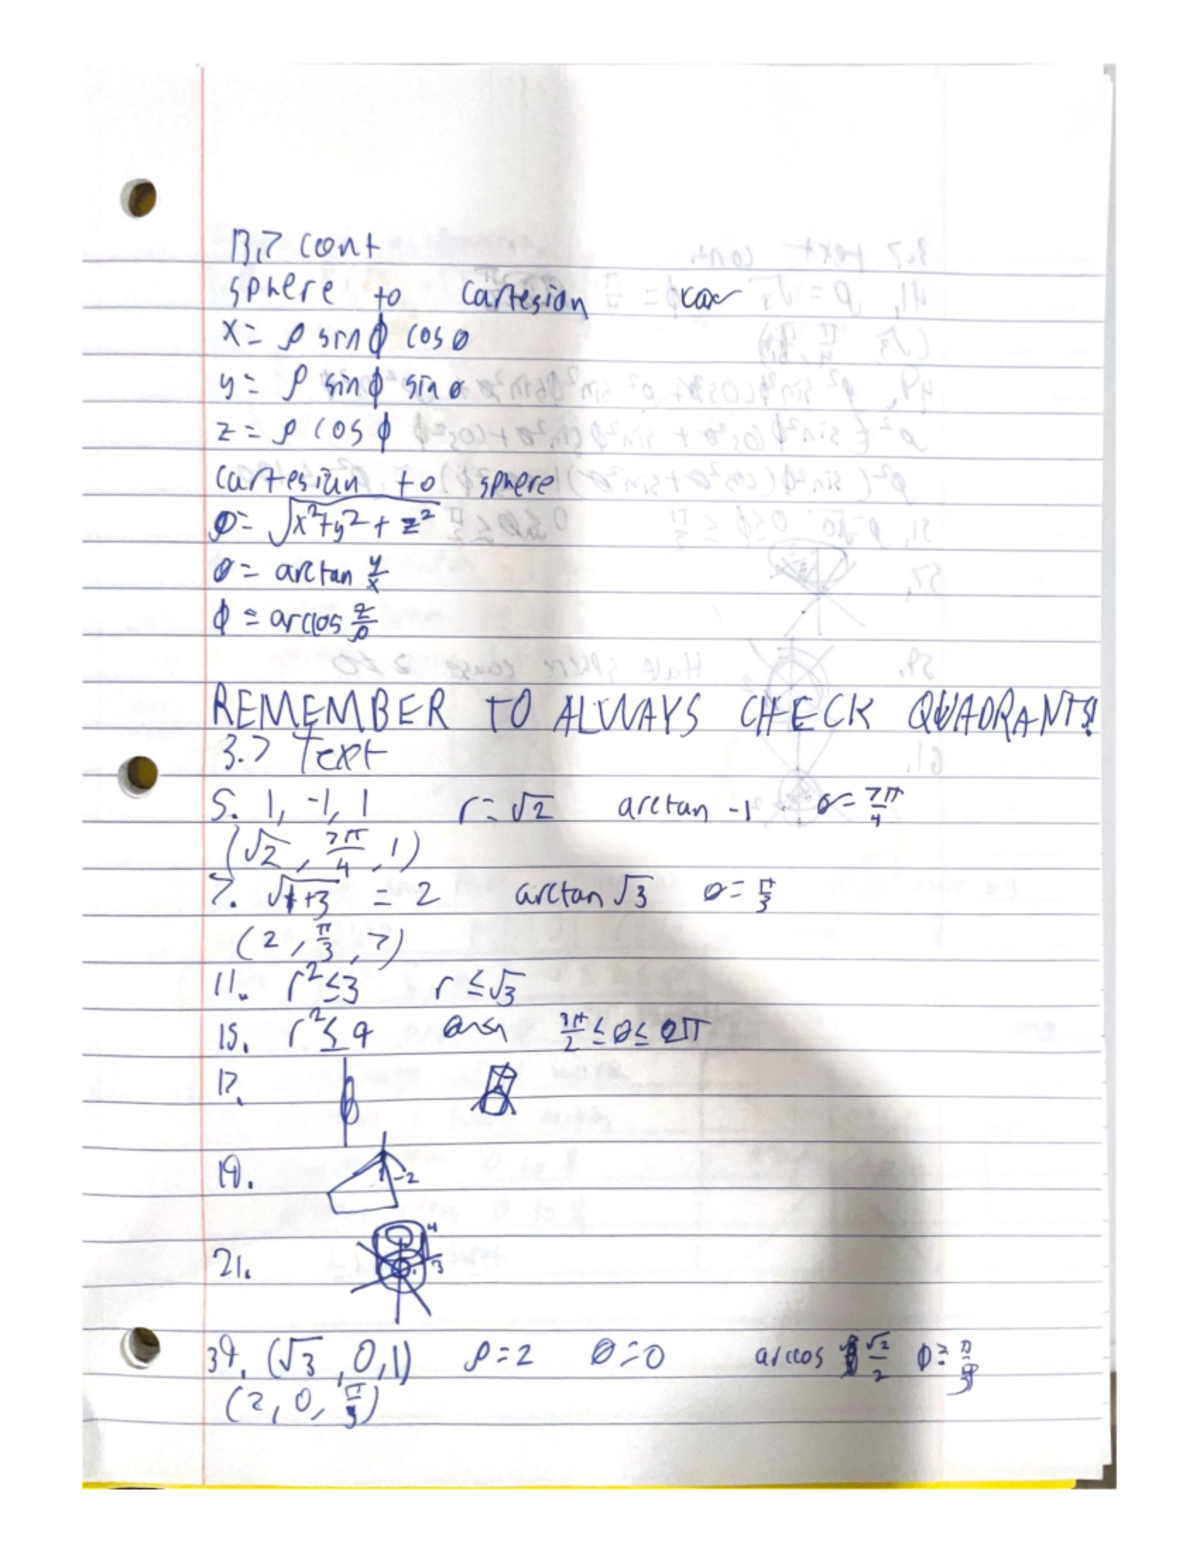 13.7 cont
sphere to cartesion
x = ρ sin ϕ cos θ
y = ρ sin ϕ sin θ
z = ρ cos ϕ
cartesian to sphere
ρ = √x²+y²+z²
θ = arctan y/x
ϕ = arccos z/ρ
REMEMBER TO ALWAYS CHECK QUADRANTS!
3.7 Text
5. 1, -1, 1 r = √2 arctan -1 θ = 7π/4
(√2, 7π/4, 1)
7. √1+3 = 2 arctan √3 θ = π/3
(2, π/3, 7)
11. r² ≤ 3 r ≤ √3
15. r² ≤ 9 3π/2 ≤ θ ≤ 2π
17.
19. 1 -2
21. 4 3
39. (√3, 0, 1) ρ = 2 θ = 0 arccos √2/2 ϕ = π/3
(2, 0, π/3)